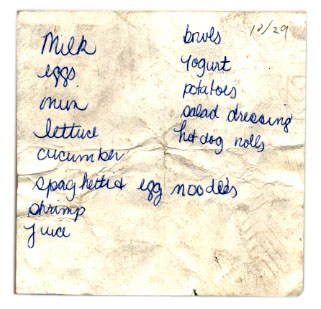 10/29
Milk
eggs
lettuce
cucumber
spaghetti & egg noodles
shrimp
juice
bowls
yogurt
potatoes
salad dressing
hot dog rolls